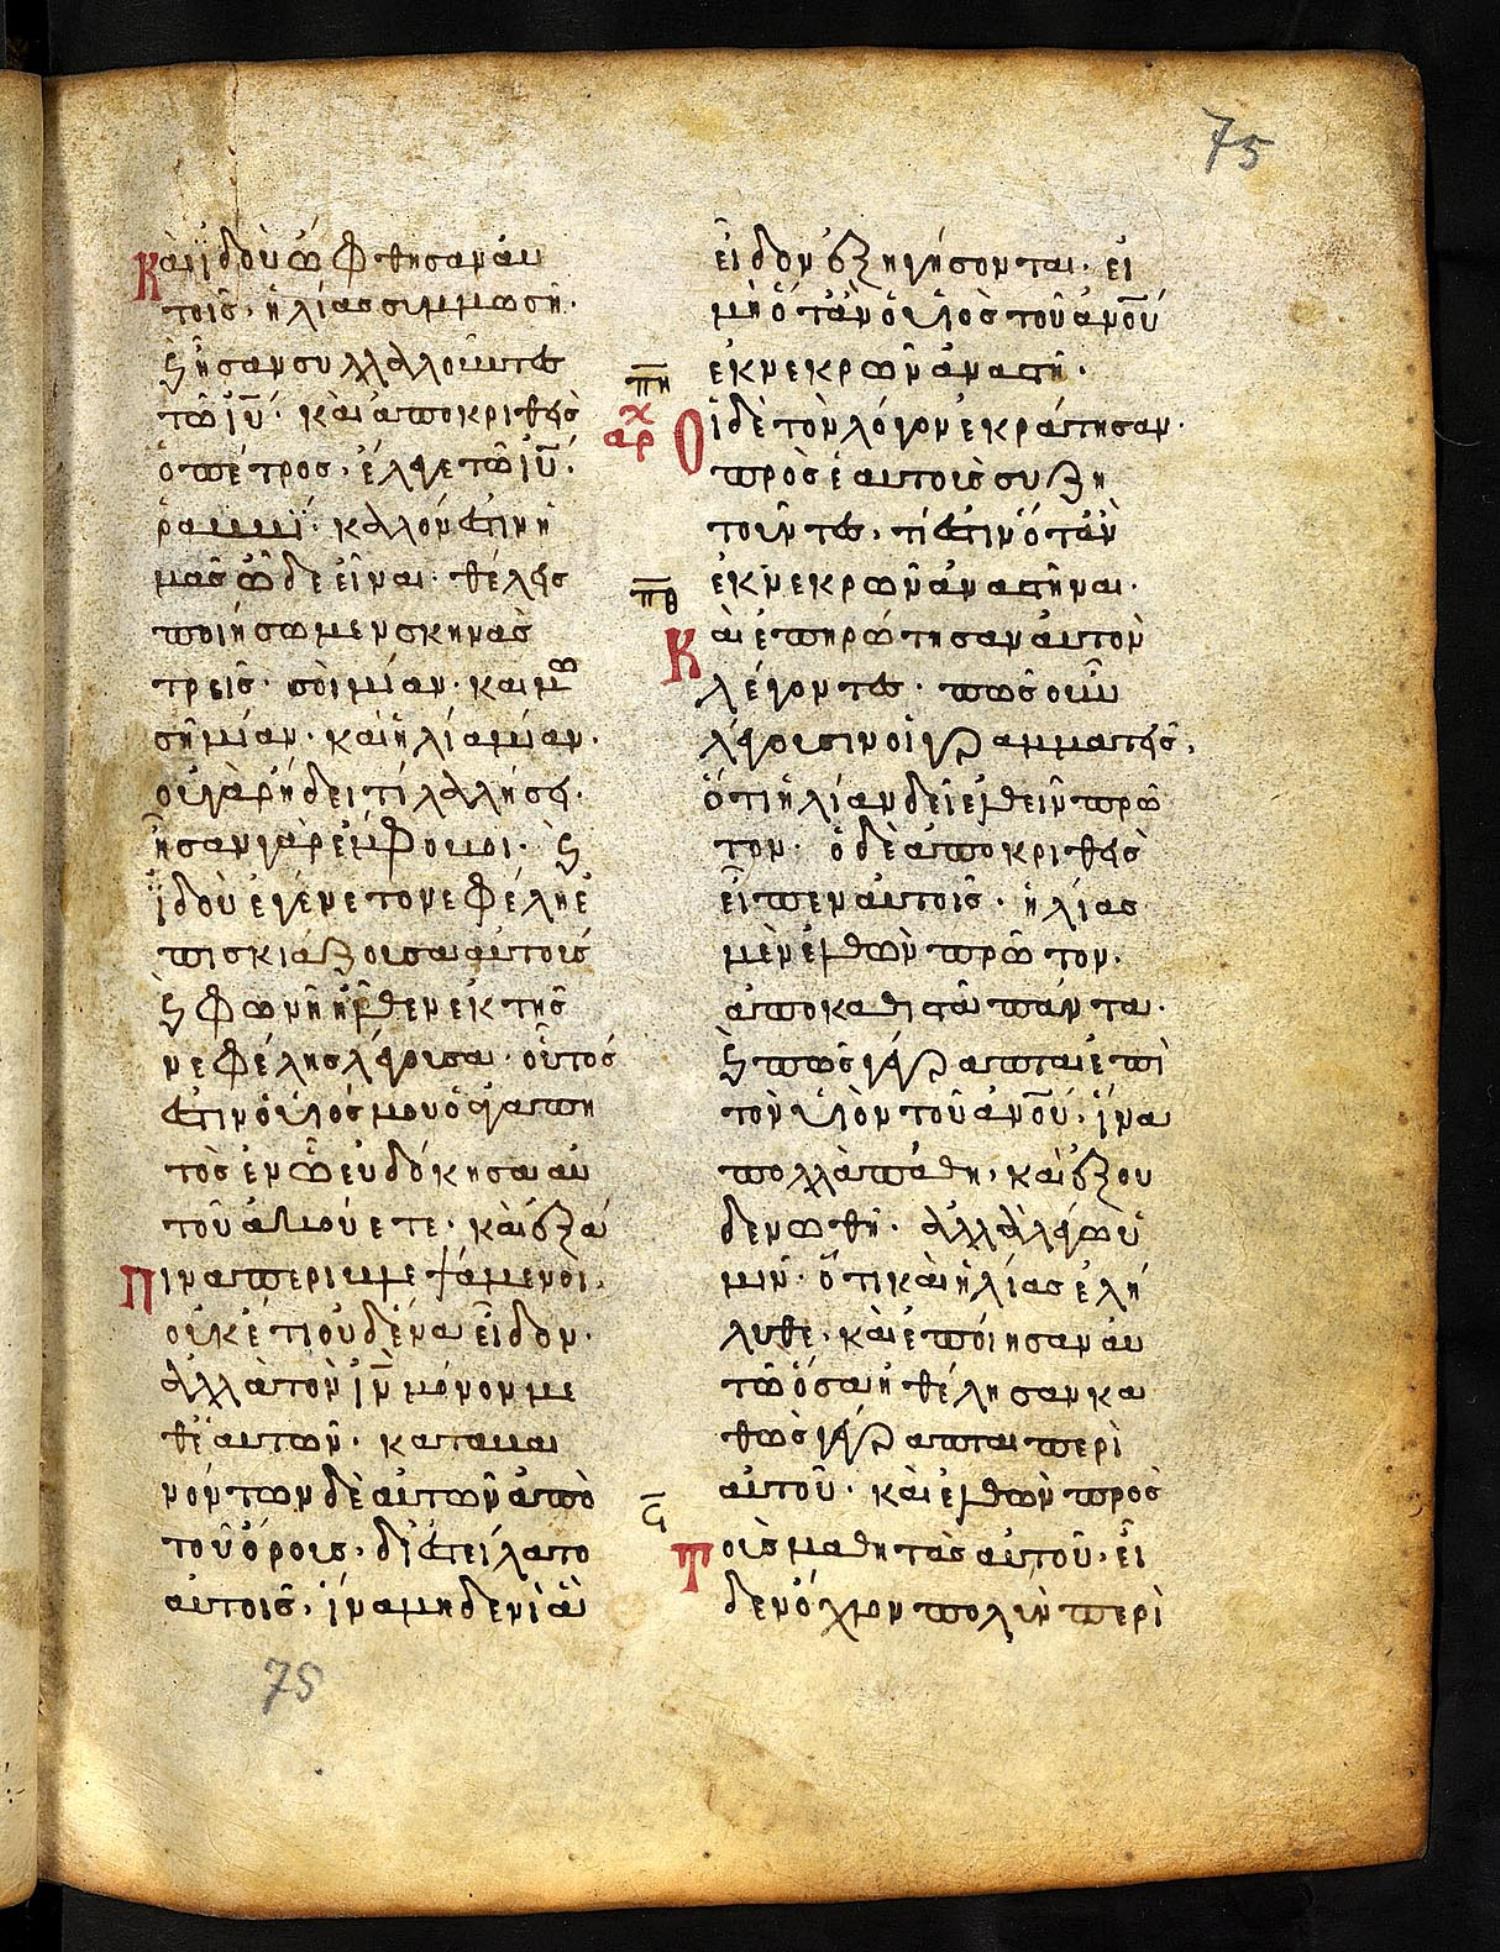 75
Καὶ ἰδοὺ ὤφθησαν αὐ
τοῖς, ἡλίας σὺμ μωσῆ·
ϗ ἦσαν συλλαλοῦντες
τῶ ιυ· καὶ ἀποκριθεὶς
ὁ πέτρος, ἔλεγε τῶ ιυ·
ῥαββί· καλόν ἐστιν ἡ
μᾶς ὧδε εἶναι· θέλεις
ποιήσωμεν σκηνὰς
τρεῖς· σοὶ μίαν· και μω
σῆ μίαν· καὶ ἡλία μίαν·
οὐ γὰρ ἤδει τί λαλήσει·
ἦσαν γὰρ ἔμφοβοι· ϗ
ἰδοὺ ἐγένετο νεφέλη ἐ
πισκιάζουσα αὐτοῖς
ϗ φωνὴ ἦλθεν ἐκ τῆς
νεφέλης λέγουσα· οὗτός
ἐστιν ὁ υἱός μου ὁ ἀγαπη
τὸς ἐν ὧ εὐδόκησα αὐ
τοῦ ἀκούετε· καὶ ἐξά
Πινα περιβλεψάμενοι,
οὐκέτι οὐδένα εἶδον·
ἀλλὰ τὸν ιν μόνον με
θ' ἑαυτῶν· καταβαι
νόντων δὲ αὐτῶν ἀπὸ
τοῦ ὄρους, διεστείλατο
αὐτοῖς, ἵνα μηδενὶ ἃ
75
εἶδον ἐξηγήσονται· εἰ
μὴ ὅταν ὁ υἱὸς τοῦ ανου
ἐκ νεκρῶν ἀναστῆ·
πη
αρχ
Οἱ δὲ τὸν λόγον ἐκράτησαν·
πρὸς ἑαυτοὺς συζη
τοῦντες, τί ἐστιν ὅταν
ἐκ νεκρῶν ἀναστῆναι·
πθ
Και ἐπηρώτησαν αὐτὸν
λέγοντες· πῶς οὖν
λέγουσιν οἱ γραμματεῖς,
ὅτι ἡλίαν δεῖ ἐλθεῖν πρῶ
τον· ὁ δὲ ἀποκριθεὶς
εἶπεν αὐτοῖς· ἡλίας
μὲν ἐλθὼν πρῶτον,
ἀποκαθιστᾶ πάντα·
ϗ πῶς γέγραπται ἐπὶ
τὸν υἱὸν τοῦ ανου, ἵνα
πολλὰ πάθη, καὶ ἐξου
δενωθῆ· ἀλλὰ λέγω ὑ
μῖν· ὅτι καὶ ἡλίας ἐλή
λυθε, καὶ ἐποίησαν αὐ
τῶ ὅσα ἠθέλησαν κα
θὼς γέγραπται περὶ
αὐτοῦ· καὶ ἐλθὼν πρὸς
Τοὺς μαθητὰς αὐτοῦ, εἶ
δεν ὄχλον πολὺν περὶ